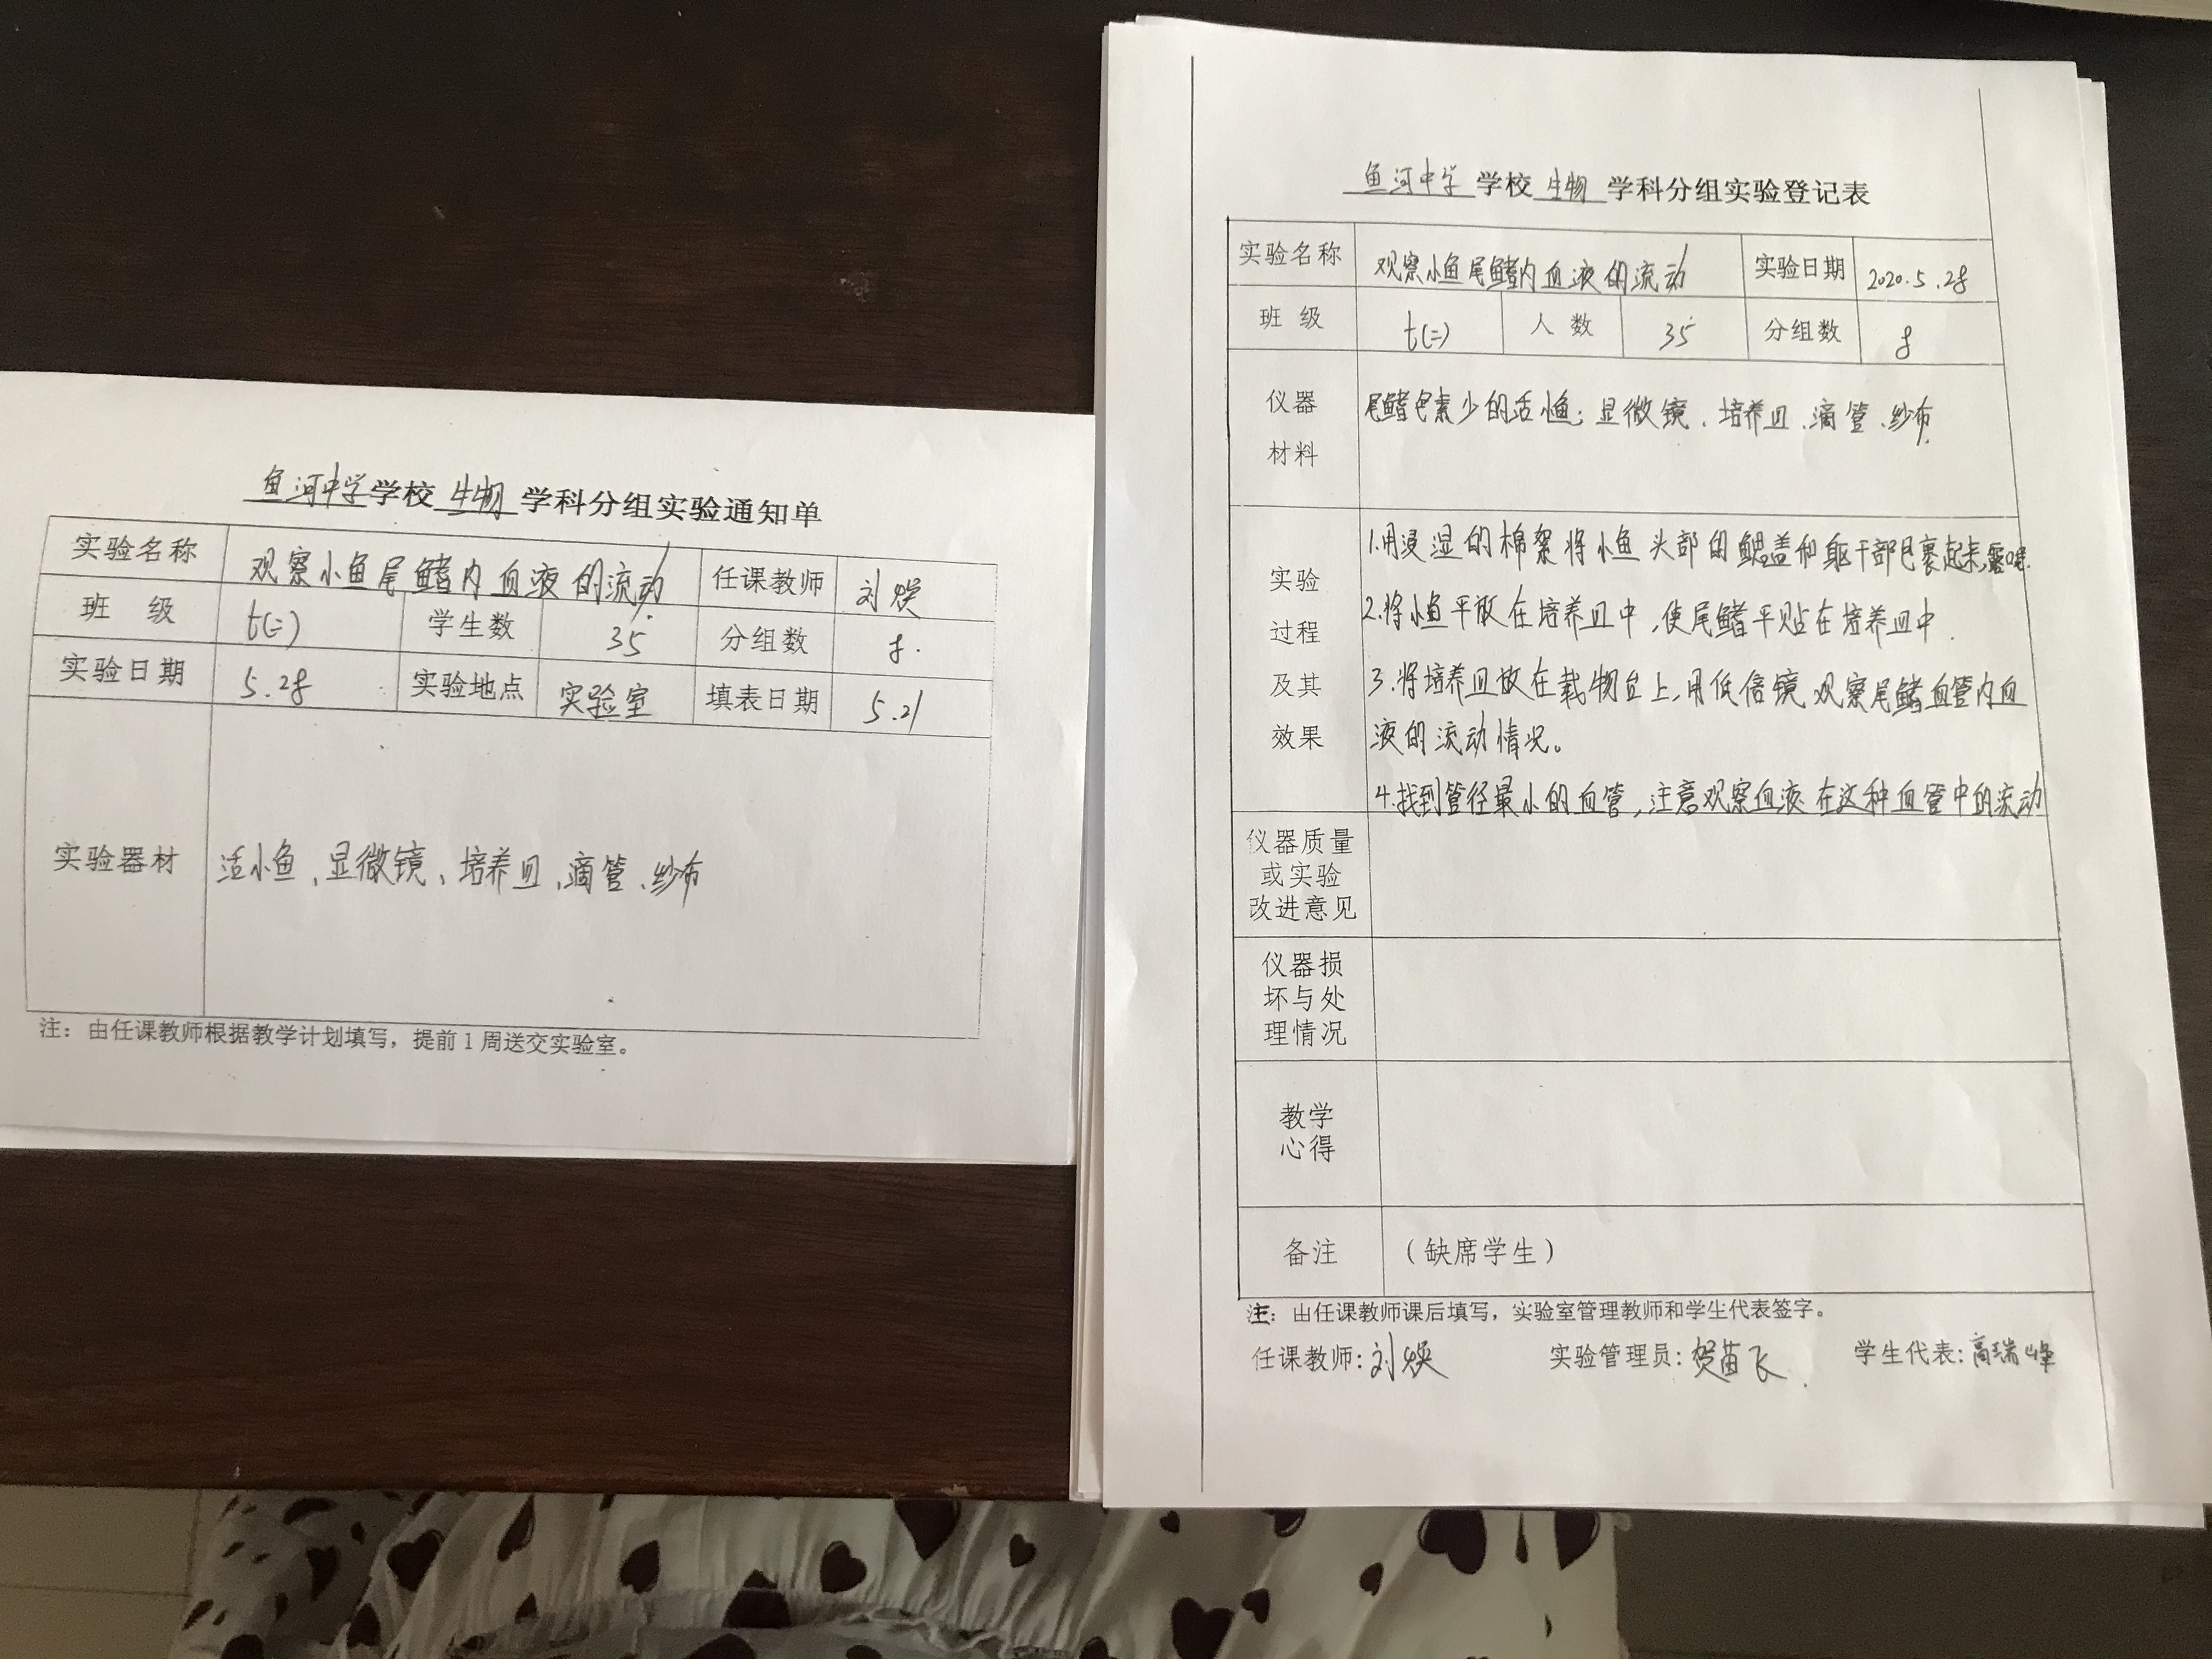 鱼河中学学校 生物 学科分组实验通知单
实验名称 观察小鱼尾鳍内血液的流动 任课教师 刘焕
班 级 七(二) 学生数 35 分组数 8.
实验日期 5.28 实验地点 实验室 填表日期 5.21
实验器材 活小鱼、显微镜、培养皿、滴管、纱布
注：由任课教师根据教学计划填写，提前1周送交实验室。
鱼河中学 学校 生物 学科分组实验登记表
实验名称 观察小鱼尾鳍内血液的流动 实验日期 2020.5.28
班 级 七(二) 人 数 35 分组数 8
仪器
材料
尾鳍色素少的活小鱼；显微镜、培养皿、滴管、纱布
实验
过程
及其
效果
1.用浸湿的棉絮将小鱼头部的鳃盖和躯干部包裹起来,
2.将小鱼平放在培养皿中,使尾鳍平贴在培养皿中.
3.将培养皿放在载物台上,用低倍镜观察尾鳍血管内血
液的流动情况。
4.找到管径最小的血管,注意观察血液在这种血管中的流动
仪器质量
或实验
改进意见
仪器损
坏与处
理情况
教学
心得
备注 （缺席学生）
注：由任课教师课后填写，实验室管理教师和学生代表签字。
任课教师:刘焕 实验管理员:贺苗飞 学生代表:高瑞峰